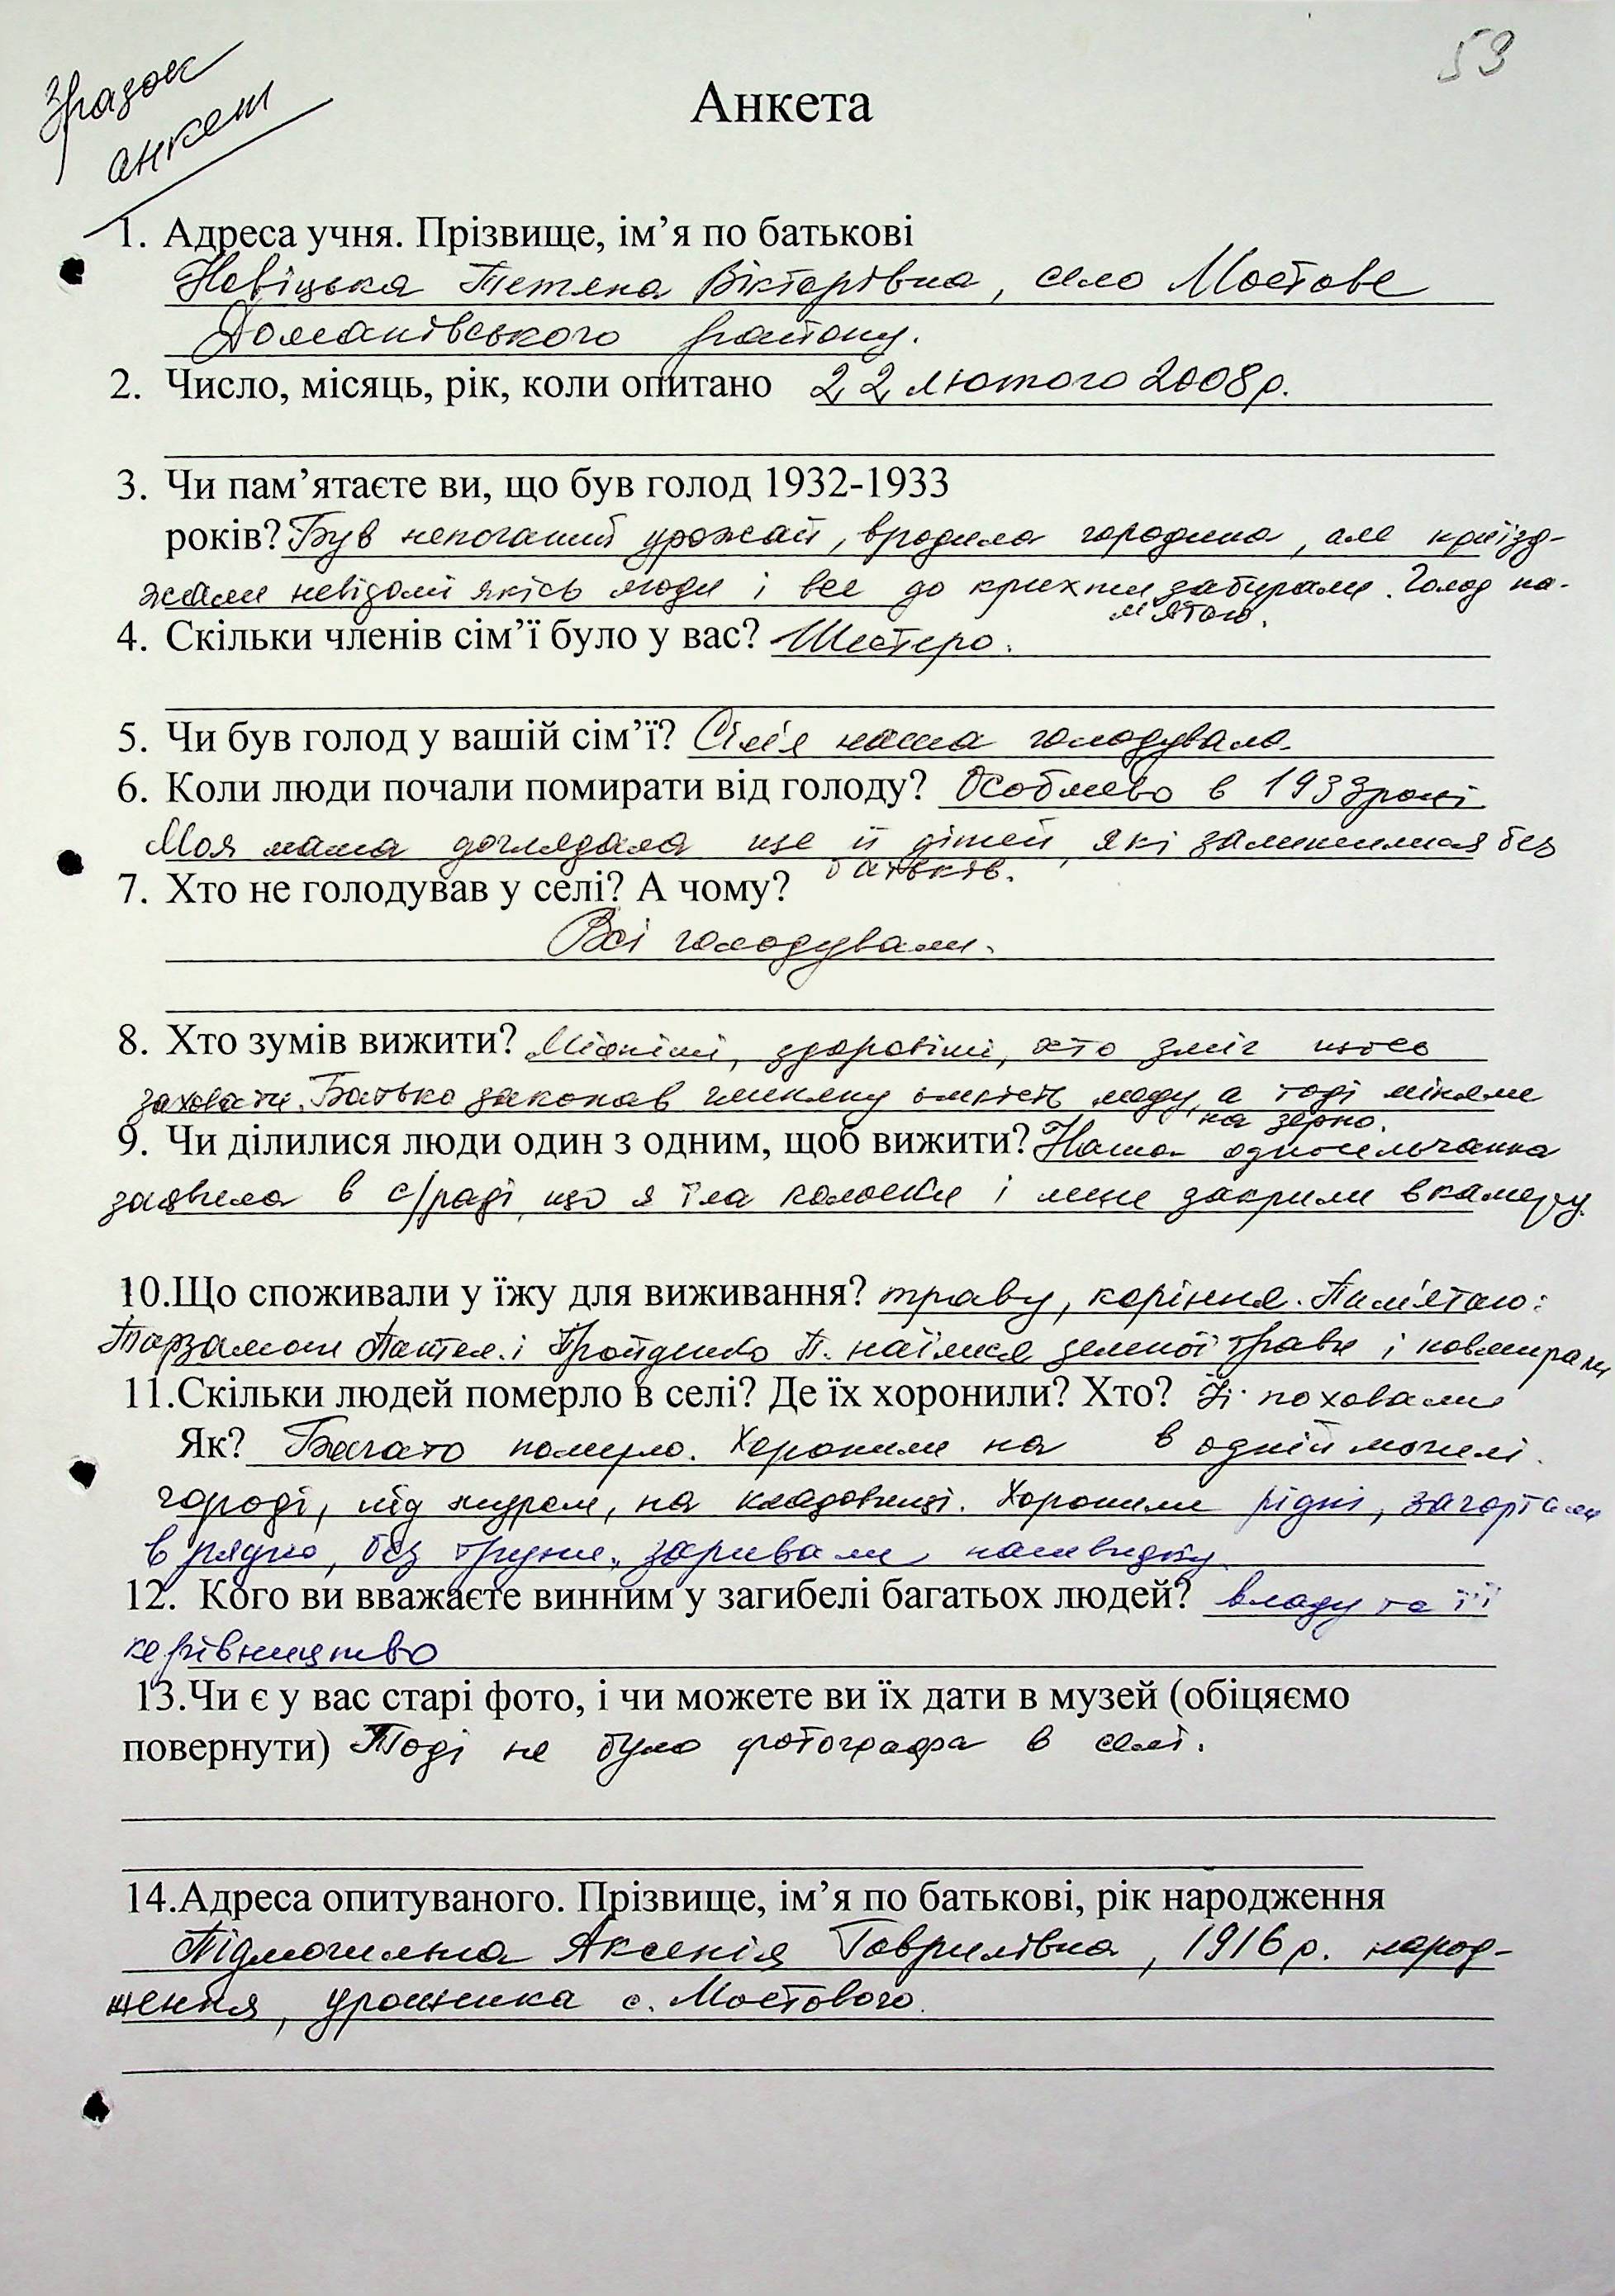 53
Зразок
анкет
Анкета
1. Адреса учня. Прізвище, ім’я по батькові
Новіцька Тетяна Вікторівна, село Мостове
Доманівського району.
2. Число, місяць, рік, коли опитано 22 лютого 2008р.
3. Чи пам’ятаєте ви, що був голод 1932-1933
років? Був непоганий урожай, вродила городина, але приїзд-
жали невідомі якісь люди і все до крихти забирали. Голод па-
м'ятаю.
4. Скільки членів сім’ї було у вас? Шестеро.
5. Чи був голод у вашій сім’ї? Сім'я наша голодувала.
6. Коли люди почали помирати від голоду? Особливо в 1933році
Моя мама доглядала ще й дітей, які залишилися без
батьків.
7. Хто не голодував у селі? А чому?
Всі голодували.
8. Хто зумів вижити? Міцніші, здоровіші, хто зміг щось
заховати. Батько закопав глиняну ємкість меду, а тоді міняли
на зерно.
9. Чи ділилися люди один з одним, щоб вижити? Наша односельчанка
заявила в с/раді, що я їла колоски і мене закрили в камеру.
10.Що споживали у їжу для виживання? траву, коріння. Пам'ятаю:
Пантел. і Пройденко П. наїлися зеленої трави і повмирали
11.Скільки людей померло в селі? Де їх хоронили? Хто? Їх поховали
Як? Багато померло. Хоронили на в одній могилі.
городі, під муром, на кладовищі. Хоронили рідні, загортали
в рядно, без труни, заривали нашвидку.
12. Кого ви вважаєте винним у загибелі багатьох людей? владу та її
керівництво
13.Чи є у вас старі фото, і чи можете ви їх дати в музей (обіцяємо
повернути) Тоді не було фотографа в селі.
14.Адреса опитуваного. Прізвище, ім’я по батькові, рік народження
Підмогильна Аксенія Гаврилівна, 1916 р. народ-
ження, уроженка с. Мостового.